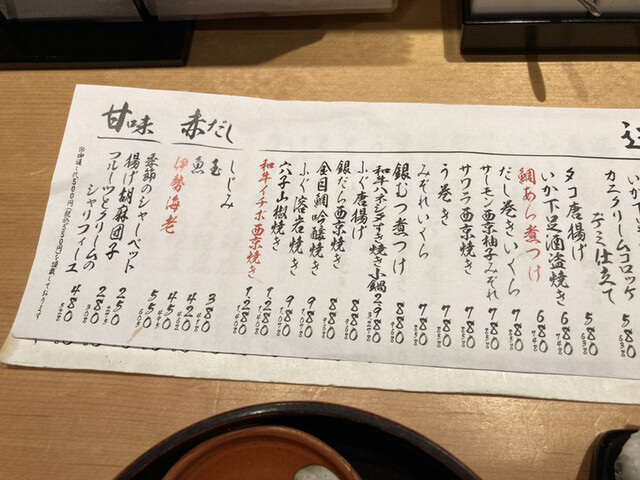 カニクリームコロッケ
デミ仕立て 580 638
タコ唐揚げ 580 638
いか下足酒盗焼き 680 748
鯛あら煮つけ 680 748
だし巻きいくら 780 858
サーモン西京柚子みぞれ 780 858
サワラ西京焼き 780 858
う巻き 780 858
みぞれいくら 780 858
銀むつ煮つけ 880 968
和牛ハネシタすき焼き小鍋 2,980 3,278
ふぐ唐揚げ 880 968
銀だら西京焼き 880 968
金目鯛吟醸焼き 980 1,078
ふぐ溶岩焼き 980 1,078
穴子山椒焼き 1,280 1,408
和牛イチボ西京焼き 1,280 1,408
赤だし
しじみ 380 418
玉 420 462
魚 450 495
伊勢海老 550 605
甘味
季節のシャーベット 250 275
揚げ胡麻団子 280 308
フルーツとクリームの
シャリフィーユ 480 528